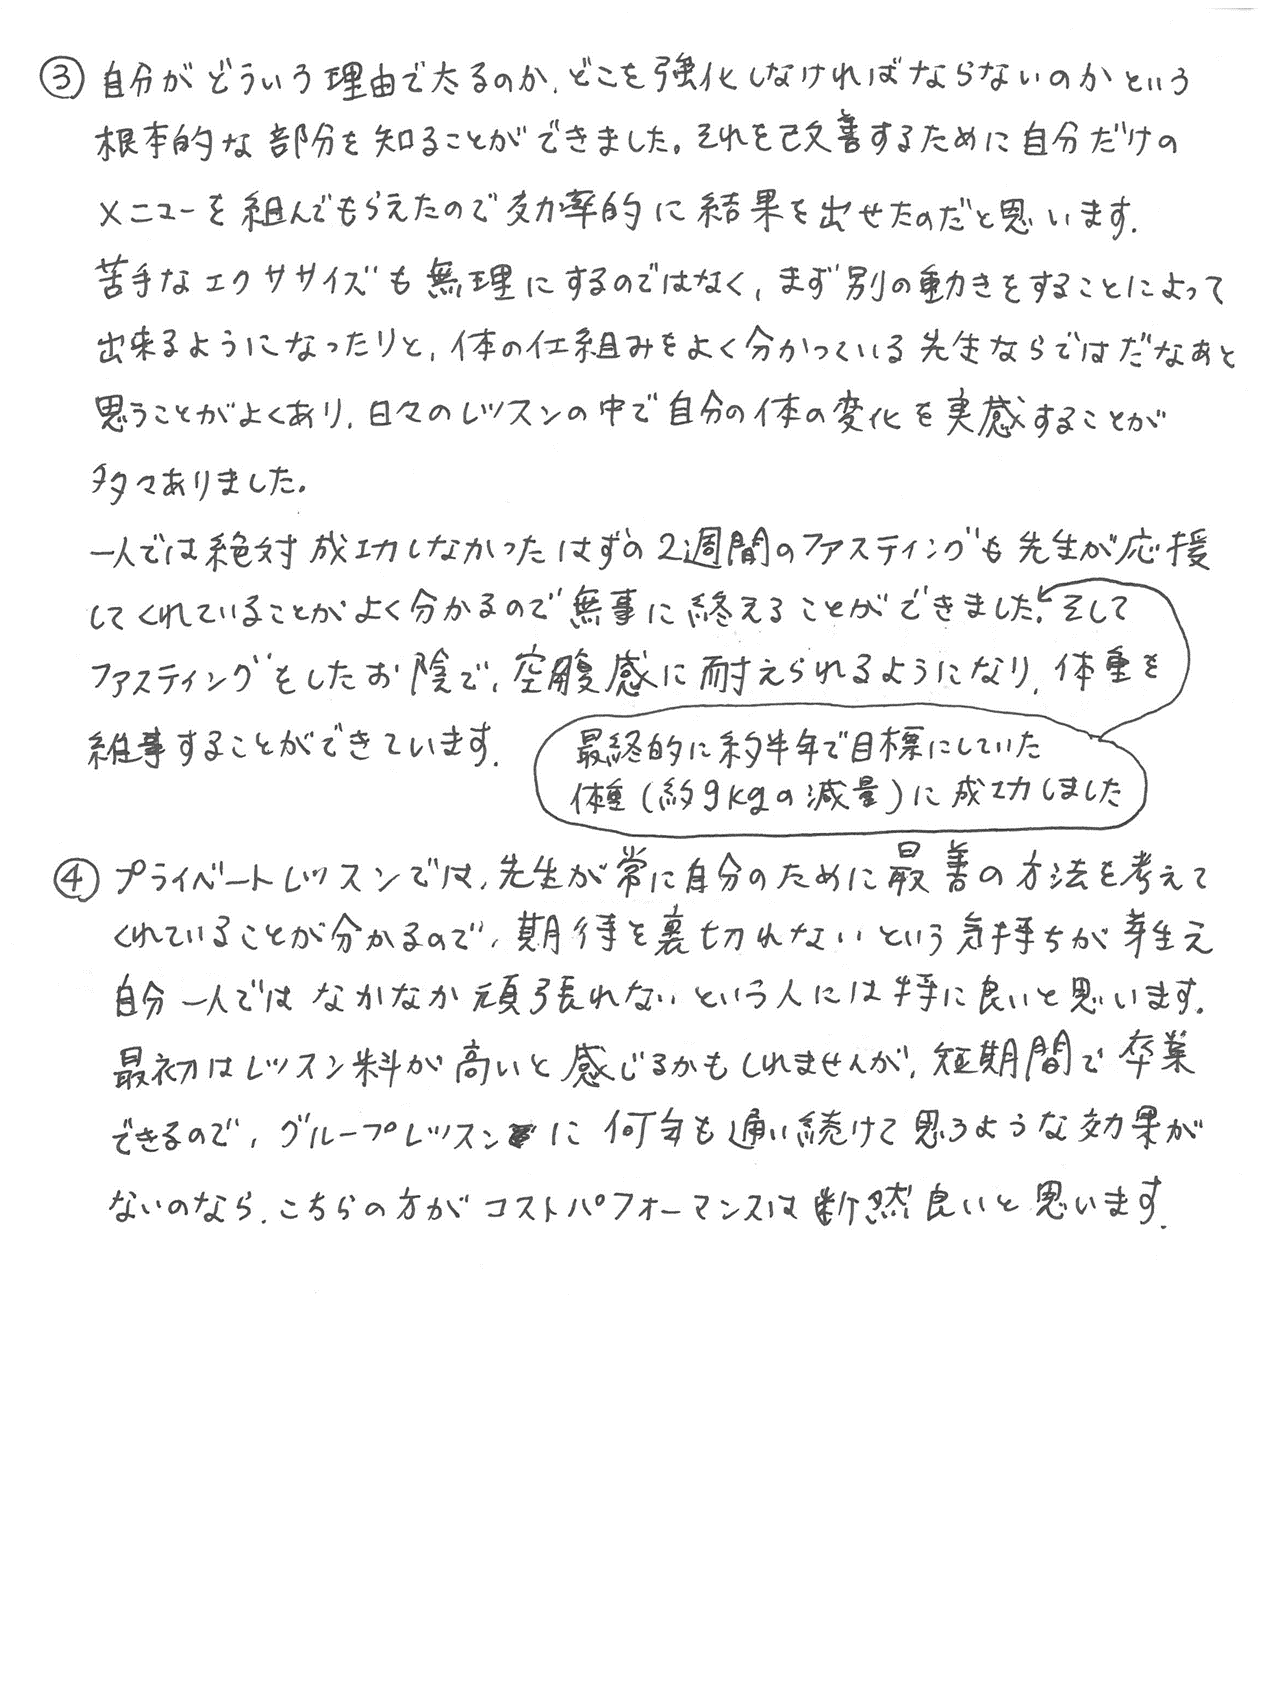 ③ 自分がどういう理由で太るのか、どこを強化しなければならないのかという
根本的な部分を知ることができました。それを改善するために自分だけの
メニューを組んでもらえたので効率的に結果を出せたのだと思います。
苦手なエクササイズも無理にするのではなく、まず別の動きをすることによって
出来るようになったりと、体の仕組みをよく分かっている先生ならではだなぁと
思うことがよくあり、日々のレッスンの中で自分の体の変化を実感することが
多々ありました。
一人では絶対成功しなかったはずの2週間のファスティングも先生が応援
してくれていることがよく分かるので無事に終えることができました。そして
ファスティングをしたお陰で、空腹感に耐えられるようになり、体重を
維事することができています。
最終的に約半年で目標にしていた
体重(約9kgの減量)に成功しました
④ プライベートレッスンでは、先生が常に自分のために最善の方法を考えて
くれていることが分かるので、期待を裏切れないという気持ちが芽生え
自分一人ではなかなか頑張れないという人には特に良いと思います。
最初はレッスン料が高いと感じるかもしれませんが、短期間で卒業
できるので、グループレッスンに何年も通い続けて思うような効果が
ないのなら、こちらの方がコストパフォーマンスは断然良いと思います。